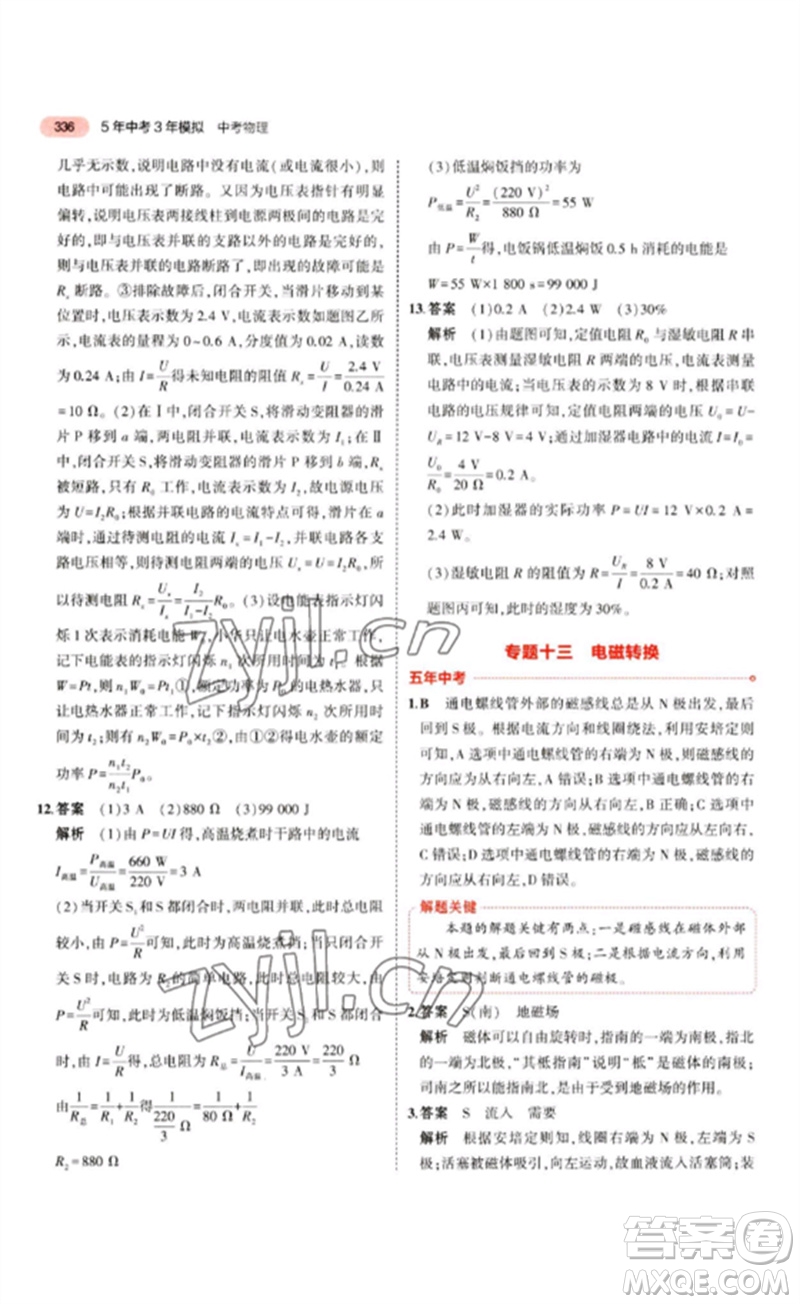 336 5年中考3年模拟 中考物理
几乎无示数,说明电路中没有电流(或电流很小),则
电路中可能出现了断路。又因为电压表指针有明显
偏转,说明电压表两接线柱到电源两极间的电路是完
好的,即与电压表并联的支路以外的电路是完好的,
则与电压表并联的电路断路了,所以出现的故障可能是
Rx断路。③排除故障后,闭合开关,当滑片移动到某
位置时,电压表示数为 2.4 V,电流表的示数如图乙所
示,电流表的量程为 0~0.6 A,分度值为 0.02 A,读数
为 0.24 A;由 I=U/R 得未知电阻的阻值 Rx=U/I=2.4 V/0.24 A
=10 Ω。(2)在Ⅰ中,闭合开关 S,将滑动变阻器的滑
片 P 移到 a 端,两电阻并联,电流表示数为 I1;在Ⅱ
中,闭合开关 S,将滑动变阻器的滑片 P 移到 b 端,Rx
被短路,只有 R0 工作,电流表示数为 I2,故电源电压
为 U=I2R0。根据并联电路的电流特点可知,滑片在 a
端时,通过待测电阻的电流 Ix=I1-I2,并联电路各支
路电压相等,则待测电阻两端的电压 Ux=U=I2R0,所
以待测电阻 Rx=Ux/Ix=I2/(I1-I2)R0。(3)设电能表指示灯闪
烁 1 次表示消耗电能 W0,小华只让电水壶正常工作,
记下电能表的指示灯闪烁 n1 次所需的时间为 t1,根据
W=Pt,则有 n1W0=Pt1①,再只让标有额定功率为 P0
电热水器正常工作,记下指示灯闪烁 n2 次所需的时
间为 t2;则有 n2W0=P0t2②,由①②得电水壶的额定
功率 P=n1t2/n2t1 P0。
12.答案 (1)3 A (2)880 Ω (3)99 000 J
解析 (1)由 P=UI得,高温烧煮时干路中的电流
I高温=P高温/U高温=660 W/220 V=3 A
(2)当开关 S1 和 S 都闭合时,两电阻并联,此时总电阻
较小,由 P=U²/R 可知,此时为高温烧煮挡;当只闭合开
关 S 时,电路为 R1 的简单电路,此时总电阻较大,由
P=U²/R可知,此时为低温焖饭挡;当开关 S1 和 S 都闭合
时,由 I=U/R 得,总电阻为 R总=U/I高温=220 V/3 A=220/3 Ω
由1/R总=1/R1+1/R2得1/(220/3 Ω)=1/80 Ω+1/R2
R2=880 Ω
(3)低温焖饭挡的功率为
P低温=U²/R2=(220 V)²/880 Ω=55 W
由 P=W/t得,电饭锅低温焖饭 0.5 h 消耗的电能是
W=55 W×1 800 s=99 000 J
13.答案 (1)0.2 A (2)2.4 W (3)30%
解析 (1)由题图可知,定值电阻 R0 与湿敏电阻 R 串
联,电压表测量湿敏电阻 R 两端的电压,电流表测量
电路中的电流;当电压表的示数为 8 V 时,根据串联
电路的电压规律可知,定值电阻两端的电压 U0=U-
UR=12 V-8 V=4 V;通过加湿器电路中的电流 I=I0=
U0/R0=4 V/20 Ω=0.2 A。
(2)此时加湿器的实际功率 P=UI=12 V×0.2 A=
2.4 W。
(3)湿敏电阻 R 的阻值为 R=UR/I=8 V/0.2 A=40 Ω;对照
题图丙可知,此时的湿度为 30%。
专题十三 电磁转换
五年中考
1.B 通电螺线管外部的磁感线总是从 N 极出发,最后
回到 S 极。根据电流方向和线圈绕法,利用安培定则可
知:A 选项中通电螺线管的右端为 N 极,磁感线的
方向应为从右向左,A 错误;B 选项中通电螺线管的
右端为 N 极,磁感线的方向为从右向左,B 正确;C 选
项中通电螺线管的左端为 N 极,磁感线的方向应为从左向
右,C 错误;D 选项中通电螺线管的左端为 N 极,
D 错误。
解题关键
本题的解题关键有两点:一是磁感线在磁体外部
从 N 极出发,最后回到 S 极;二是根据电流方向,利用
安培定则判断通电螺线管的磁极。
2.答案 S(南) 地磁场
解析 磁体可以自由旋转时,指南的一端为南极,指北
的一端为北极,“其柢指南”说明“柢”是磁体的南极;
司南之所以能指南北是由于地磁场的作用。
3.答案 S 流入 需要
解析 根据安培定则知,线圈右端为 N 极,左端为 S
极;活塞被磁体吸引,向左运动,故血液流入活塞筒;装
zyjl.cn
zyjl.cn
答案圈
MXQE.COM